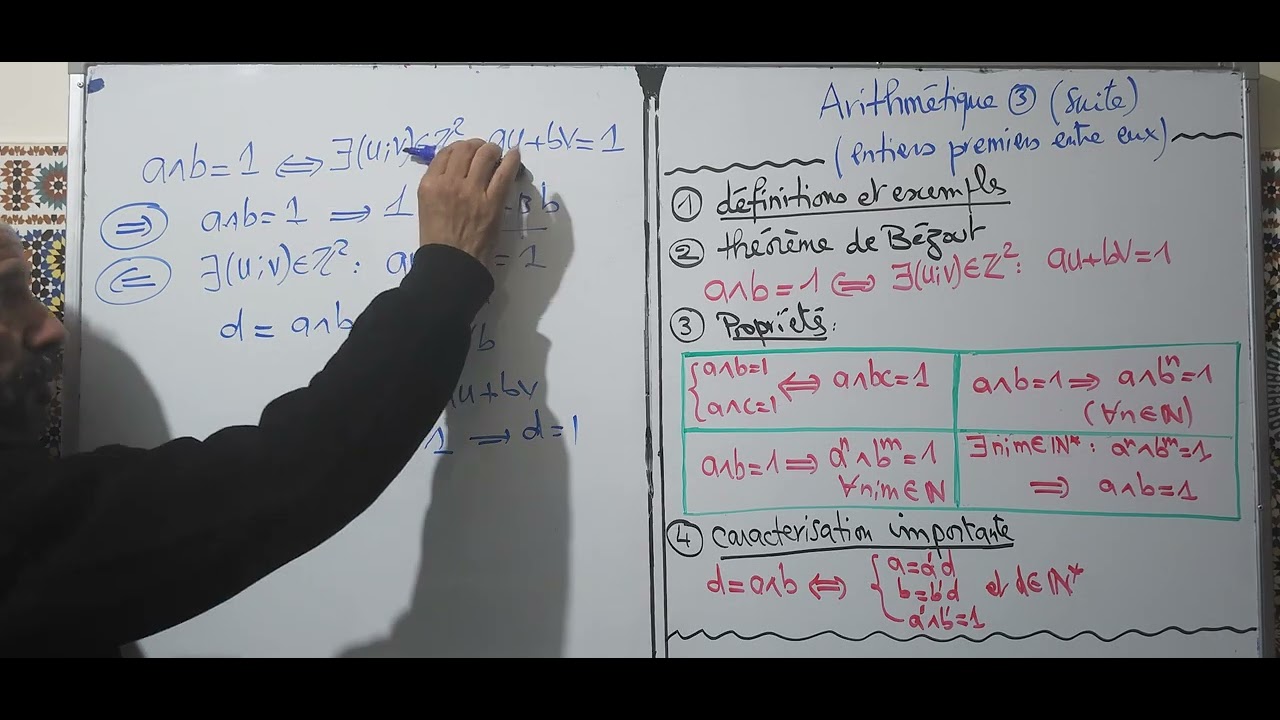 a∧b=1 ⟺ ∃(u;v)∈ℤ² au+bv=1
⇒ a∧b=1 ⟹ 1 b
⇐ ∃(u;v)∈ℤ²: au =1
d= a∧b /b
au+bv
1 ⟹ d=1
Arithmétique ③ (suite)
(entiers premiers entre eux)
① définitions et exemples
② théorème de Bézout
a∧b=1 ⟺ ∃(u;v)∈ℤ²: au+bv=1
③ Propriétés:
{a∧b=1 a∧c=1 ⟺ a∧bc=1
a∧b=1 ⟹ a∧bⁿ=1
(∀n∈ℕ)
a∧b=1 ⟹ aⁿ∧bᵐ=1
∀n;m∈ℕ
∃n;m∈ℕ*: aⁿ∧bᵐ=1
⟹ a∧b=1
④ caracterisation importante
d=a∧b ⟺ {a=a'd b=b'd a'∧b'=1 et d∈ℕ*